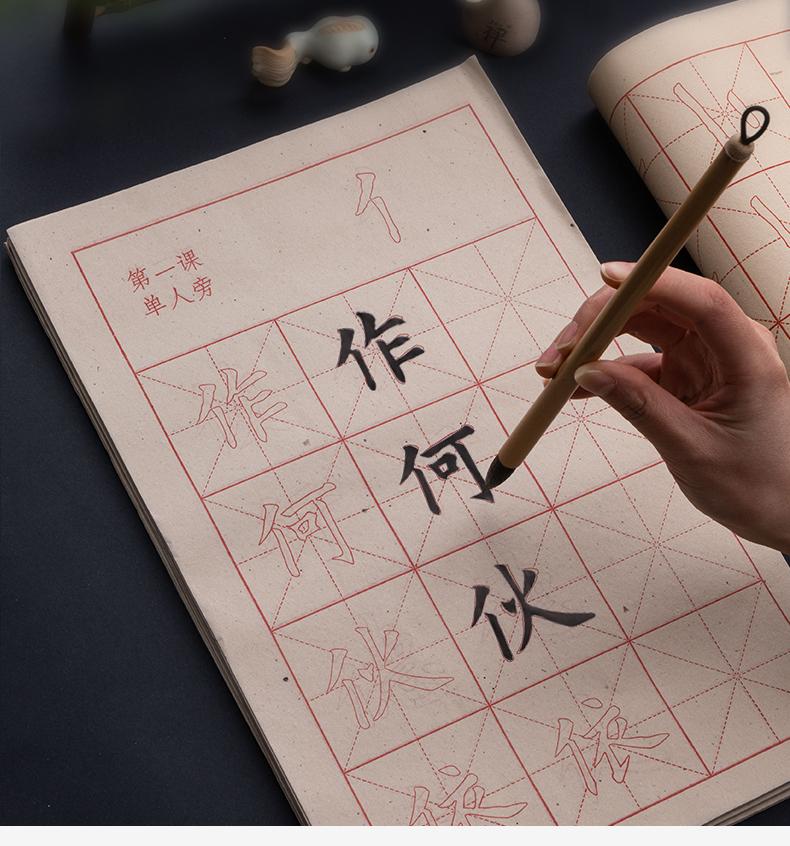 禅
亻
第一课
单人旁
作 作
何 何
伙 伙
依 依